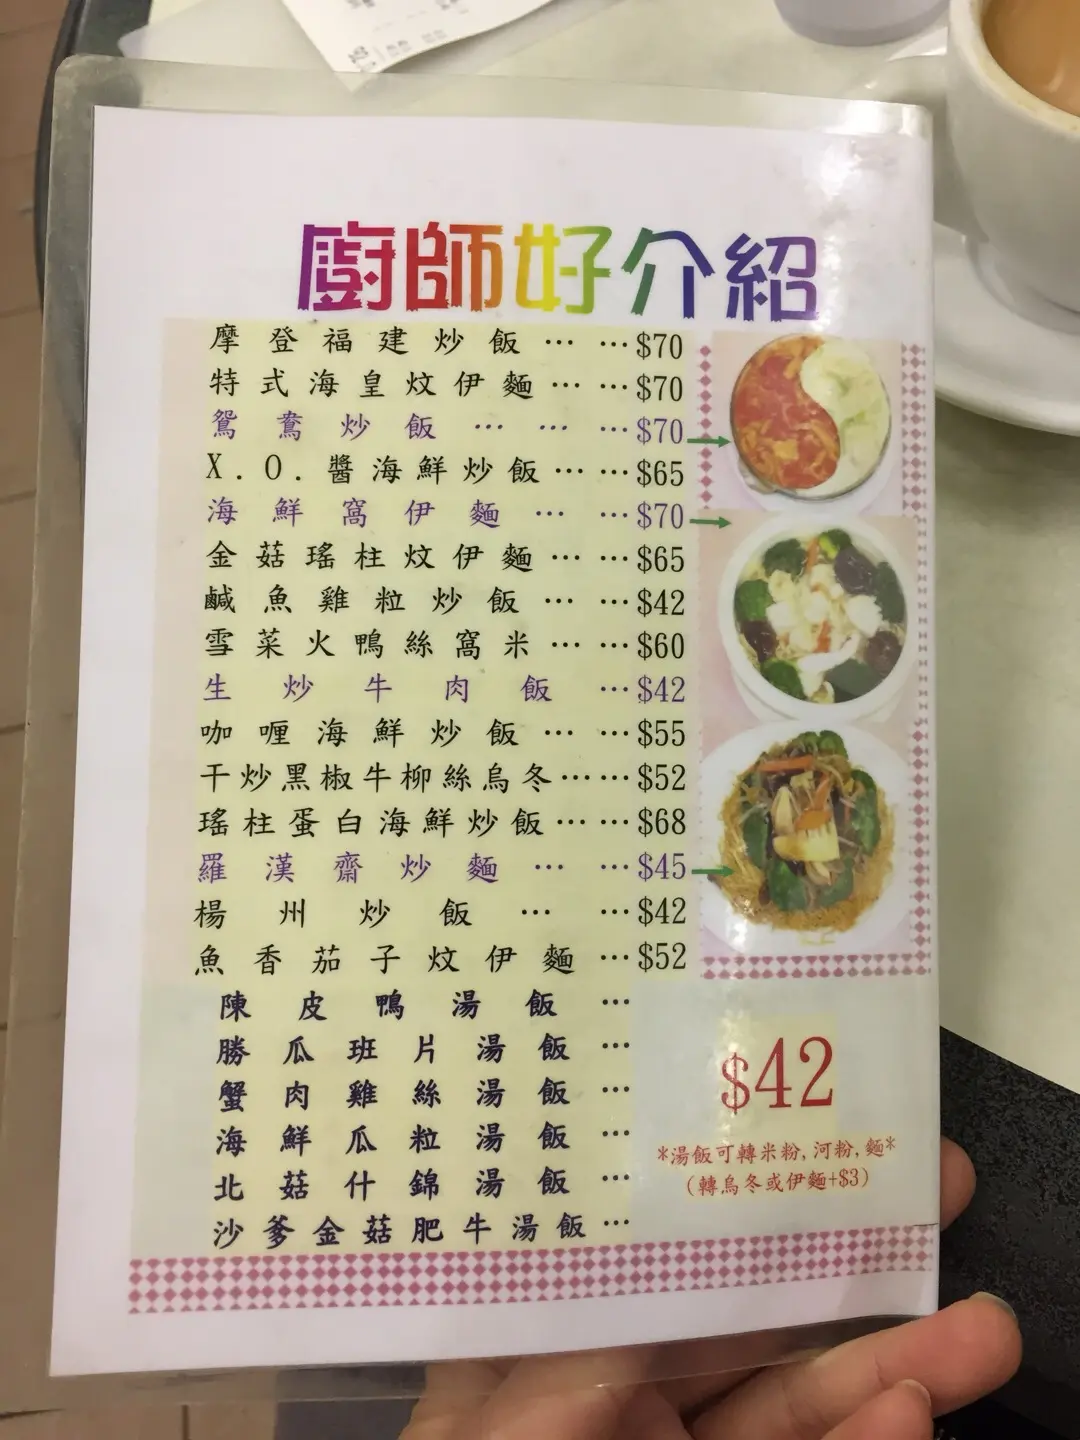 廚師好介紹
摩登福建炒飯……$70
特式海皇炆伊麵……$70
鴛鴦炒飯………$70
X.O.醬海鮮炒飯……$65
海鮮窩伊麵……$70
金菇瑤柱炆伊麵……$65
鹹魚雞粒炒飯……$42
雪菜火鴨絲窩米……$60
生炒牛肉飯…$42
咖喱海鮮炒飯……$55
干炒黑椒牛柳絲烏冬……$52
瑤柱蛋白海鮮炒飯……$68
羅漢齋炒麵……$45
楊州炒飯……$42
魚香茄子炆伊麵…$52
陳皮鴨湯飯…
勝瓜班片湯飯…
蟹肉雞絲湯飯…
海鮮瓜粒湯飯…
北菇什錦湯飯…
沙爹金菇肥牛湯飯…
$42
*湯飯可轉米粉,河粉,麵*
(轉烏冬或伊麵+$3)